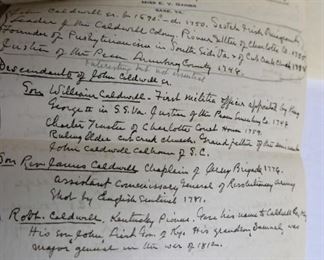 MISS E. V. GAINES
SAXE, VA.
John Caldwell sr. b 1692 - d 1750. Scotch Irish Immigrant
Leader of the Caldwell Colony. Pioneer Settler of Charlotte Co.
Founder of Presbyterianism in South Side Va. & of Cub Creek Church
Justice of the Peace Lunenburg County 1746.
Interesting but not essential
Descendants of John Caldwell sr.
Son William Caldwell - First militia officer appointed by King
George II in S.S. Va. Justice of the Peace Lunenburg Co.
Charter Trustee of Charlotte Court House
Ruling Elder Cub creek church. Grand father of the
John Caldwell Calhoun of S.C.
Son Rev James Caldwell Chaplain of Jersey Brigade 1776.
assistant commissary General of Revolutionary army
Shot by English Sentinel 1781.
Robt. Caldwell, Kentucky Pioneer. Gave his name to Caldwell Co. Ky.
His son John, Lieut Gov. of Ky. His grandson, Samuel, was
Major General in the war of 1812.